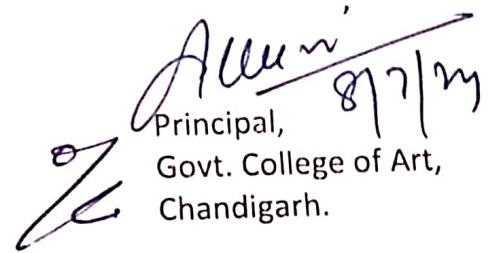 8/7/24
Principal,
Govt. College of Art,
Chandigarh.